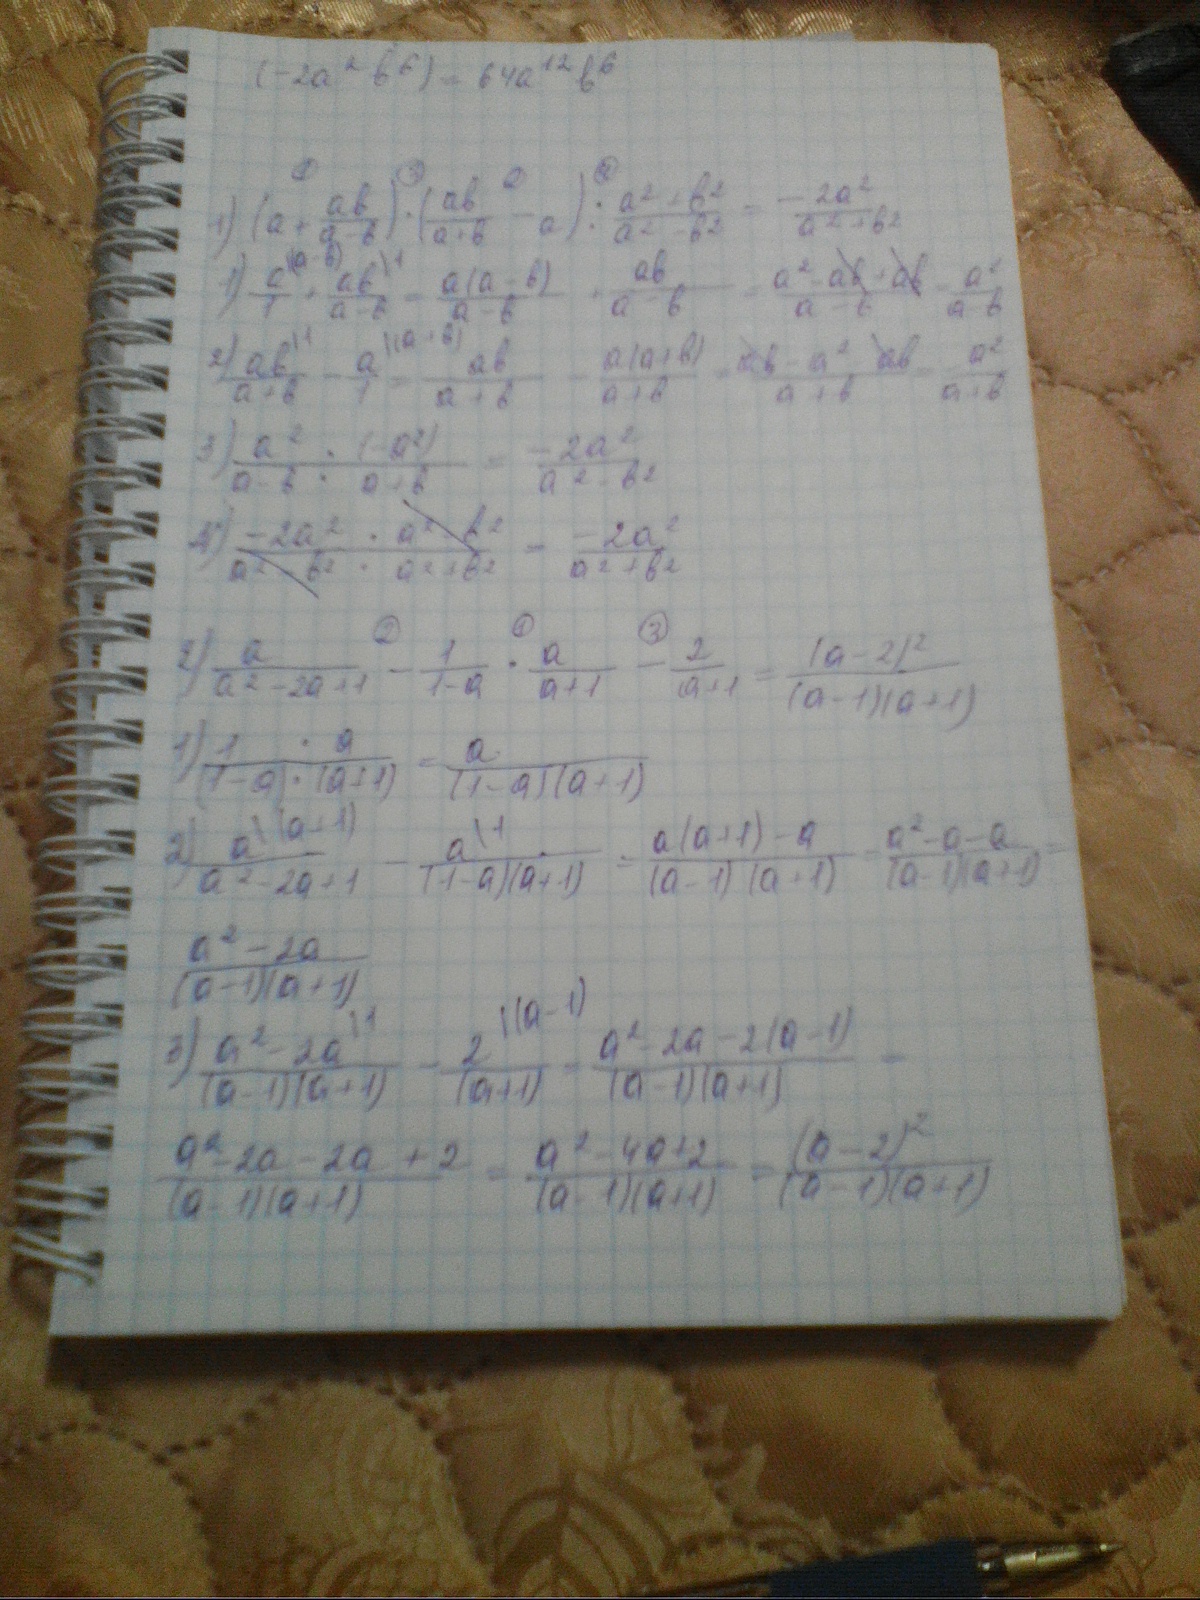 (-2a² b⁶) = 64a¹² b⁶
① ③ ② ④
1) (a + ab/(a-b)) · (ab/(a+b) - a) : (a²+b²)/(a²-b²) = -2a²/(a²+b²)
1) a\(a-b)/1 + ab\1/(a-b) = a(a-b)/(a-b) + ab/(a-b) = (a²-ab+ab)/(a-b) = a²/(a-b)
2) ab\1/(a+b) - a\(a+b)/1 = ab/(a+b) - a(a+b)/(a+b) = (ab-a² ab)/(a+b) = a²/(a+b)
3) a²/(a-b) · (-a²)/(a+b) = -2a²/(a²-b²)
4) -2a²/(a²-b²) · (a²-b²)/(a²+b²) = -2a²/(a²+b²)
② ① ③
2) a/(a²-2a+1) - 1/(1-a) · a/(a+1) - 2/(a+1) = (a-2)²/((a-1)(a+1))
1) 1 · a/((1-a)·(a+1)) = a/((1-a)(a+1))
2) a\(a+1)/(a²-2a+1) - a\1/((1-a)(a+1)) = (a(a+1)-a)/((a-1)(a+1)) = (a²-a-a)/((a-1)(a+1)) =
(a²-2a)/((a-1)(a+1))
3) (a²-2a)\1/((a-1)(a+1)) - 2\(a-1)/(a+1) = (a²-2a-2(a-1))/((a-1)(a+1)) =
(a²-2a-2a+2)/((a-1)(a+1)) = (a²-4a+2)/((a-1)(a+1)) = (a-2)²/((a-1)(a+1))